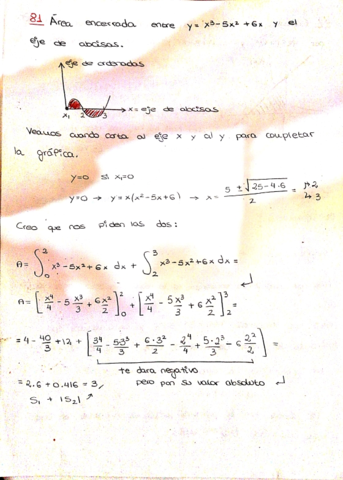 81 Área encerrada entre y = x³-5x² +6x y el
eje de abcisas.
eje de ordenadas
x₁ 2 3 x = eje de abcisas
Veamos cuando corta al eje x y al y para completar
la gráfica.
y=0 si x₁=0
y=0 → y = x(x²-5x+6) → x = (5 ± √(25-4·6))/2 = 2, 3
Creo que nos piden las dos:
A = ∫₀² x³-5x²+6x dx + ∫₂³ x³-5x²+6x dx =
A = [x⁴/4 - 5x³/3 + 6x²/2]₀² + [x⁴/4 - 5x³/3 + 6x²/2]₂³ =
= 4 - 40/3 + 12 + [3⁴/4 - 5·3³/3 + 6·3²/2 - 2⁴/4 + 5·2³/3 - 6 2²/2] =
te dara negativo
pero pon su valor absoluto
= 2.6 + 0.416 = 3,
S₁ + |S₂|